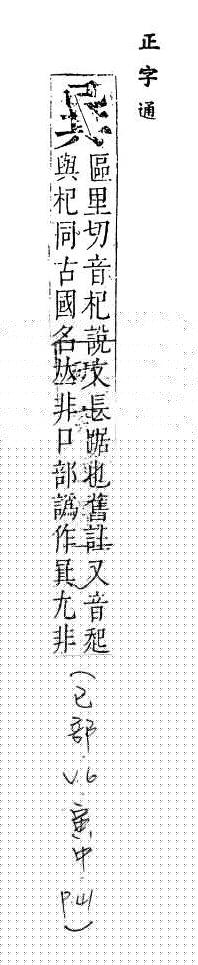 正字通
㠱
區里切音杞說文長踞也舊註又音起
與杞同古國名𠀤非口部譌作尤非
(己部.V.6.寅中.P.41)